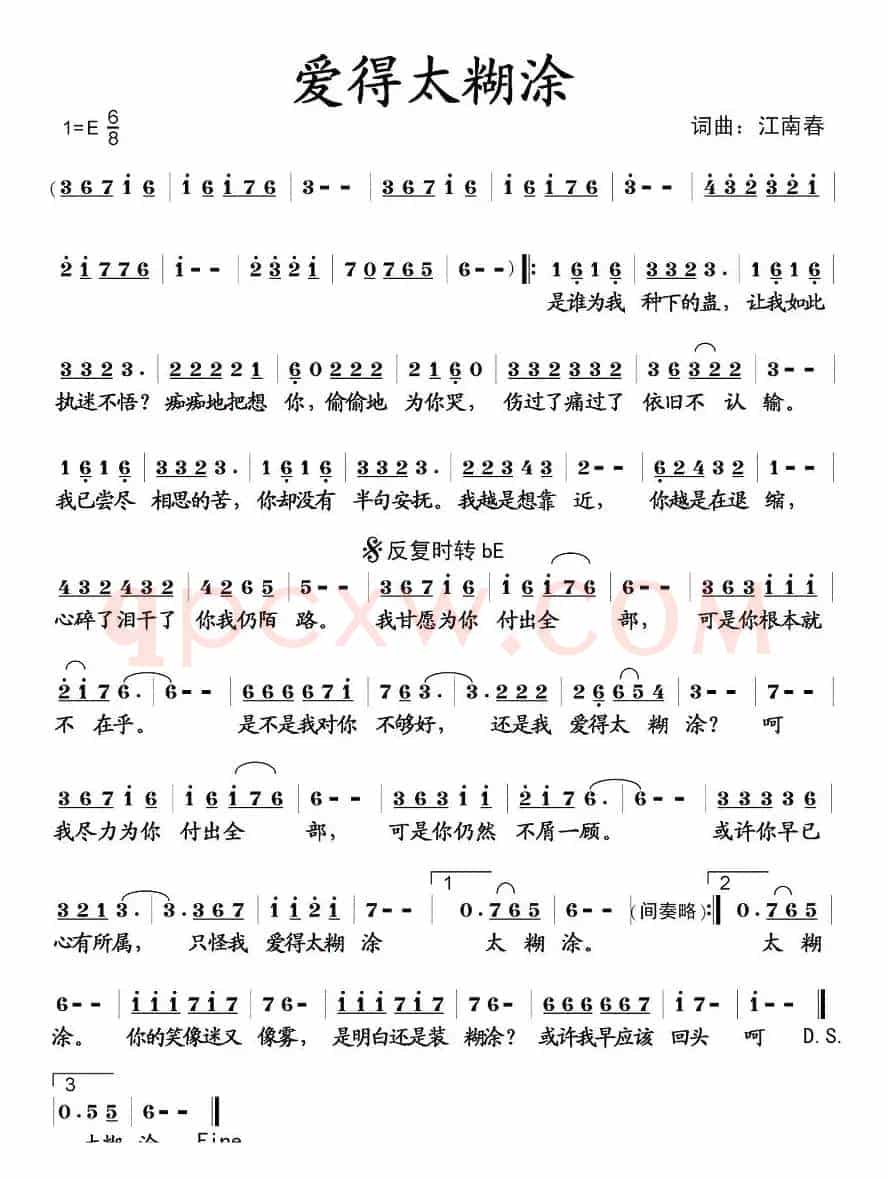 爱得太糊涂
1=E 6/8
词曲：江南春
(3 6 7 i 6 | i 6 i 7 6 | 3 - - | 3 6 7 i 6 | i 6 i 7 6 | 3 - - | 4 3 2 3 2 i |
2 i 7 7 6 | i - - | 2 3 2 i | 7 0 7 6 5 | 6 - - ) ‖: 1 6 1 6 | 3 3 2 3 . | 1 6 1 6 |
是谁为我 种下的蛊，让我如此
3 3 2 3 . | 2 2 2 2 2 1 | 6 0 2 2 2 | 2 1 6 0 | 3 3 2 3 3 2 | 3 6 3 2 2 | 3 - - |
执迷不悟？痴痴地把想 你，偷偷地 为你哭， 伤过了痛过了 依旧不 认 输。
1 6 1 6 | 3 3 2 3 . | 1 6 1 6 | 3 3 2 3 . | 2 2 3 4 3 | 2 - - | 6 2 4 3 2 | 1 - - |
我已尝尽 相思的苦，你却没有 半句安抚。我越是想靠 近， 你越是在退 缩，
反复时转 bE
4 3 2 4 3 2 | 4 2 6 5 | 5 - - | 3 6 7 i 6 | i 6 i 7 6 | 6 - - | 3 6 3 i i i |
心碎了泪干了 你我仍陌 路。 我甘愿为你 付出全 部， 可是你根本就
qpcxw.COM
2 i 7 6 . | 6 - - | 6 6 6 6 7 i | 7 6 3 . | 3 . 2 2 2 | 2 6 6 5 4 | 3 - - | 7 - - |
不 在乎。 是不是我对你 不够好， 还是我 爱得太 糊 涂？ 呵
3 6 7 i 6 | i 6 i 7 6 | 6 - - | 3 6 3 i i | 2 i 7 6 . | 6 - - | 3 3 3 3 6 |
我尽力为你 付出全 部， 可是你仍然 不屑一顾。 或许你早已
1 2
3 2 1 3 . | 3 . 3 6 7 | i i 2 i | 7 - - | 0 . 7 6 5 | 6 - - | (间奏略) :‖ 0 . 7 6 5 |
心有所属， 只怪我 爱得太糊 涂 太 糊 涂。 太 糊
6 - - | i i i 7 i 7 | 7 6 - | i i i 7 i 7 | 6 6 6 6 6 7 | i 7 - | i - - ‖
涂。 你的笑像迷又 像雾， 是明白还是装 糊涂？ 或许我早应该 回头 呵 D.S.
3
0 . 5 5 | 6 - - ‖
太糊 涂 Fine